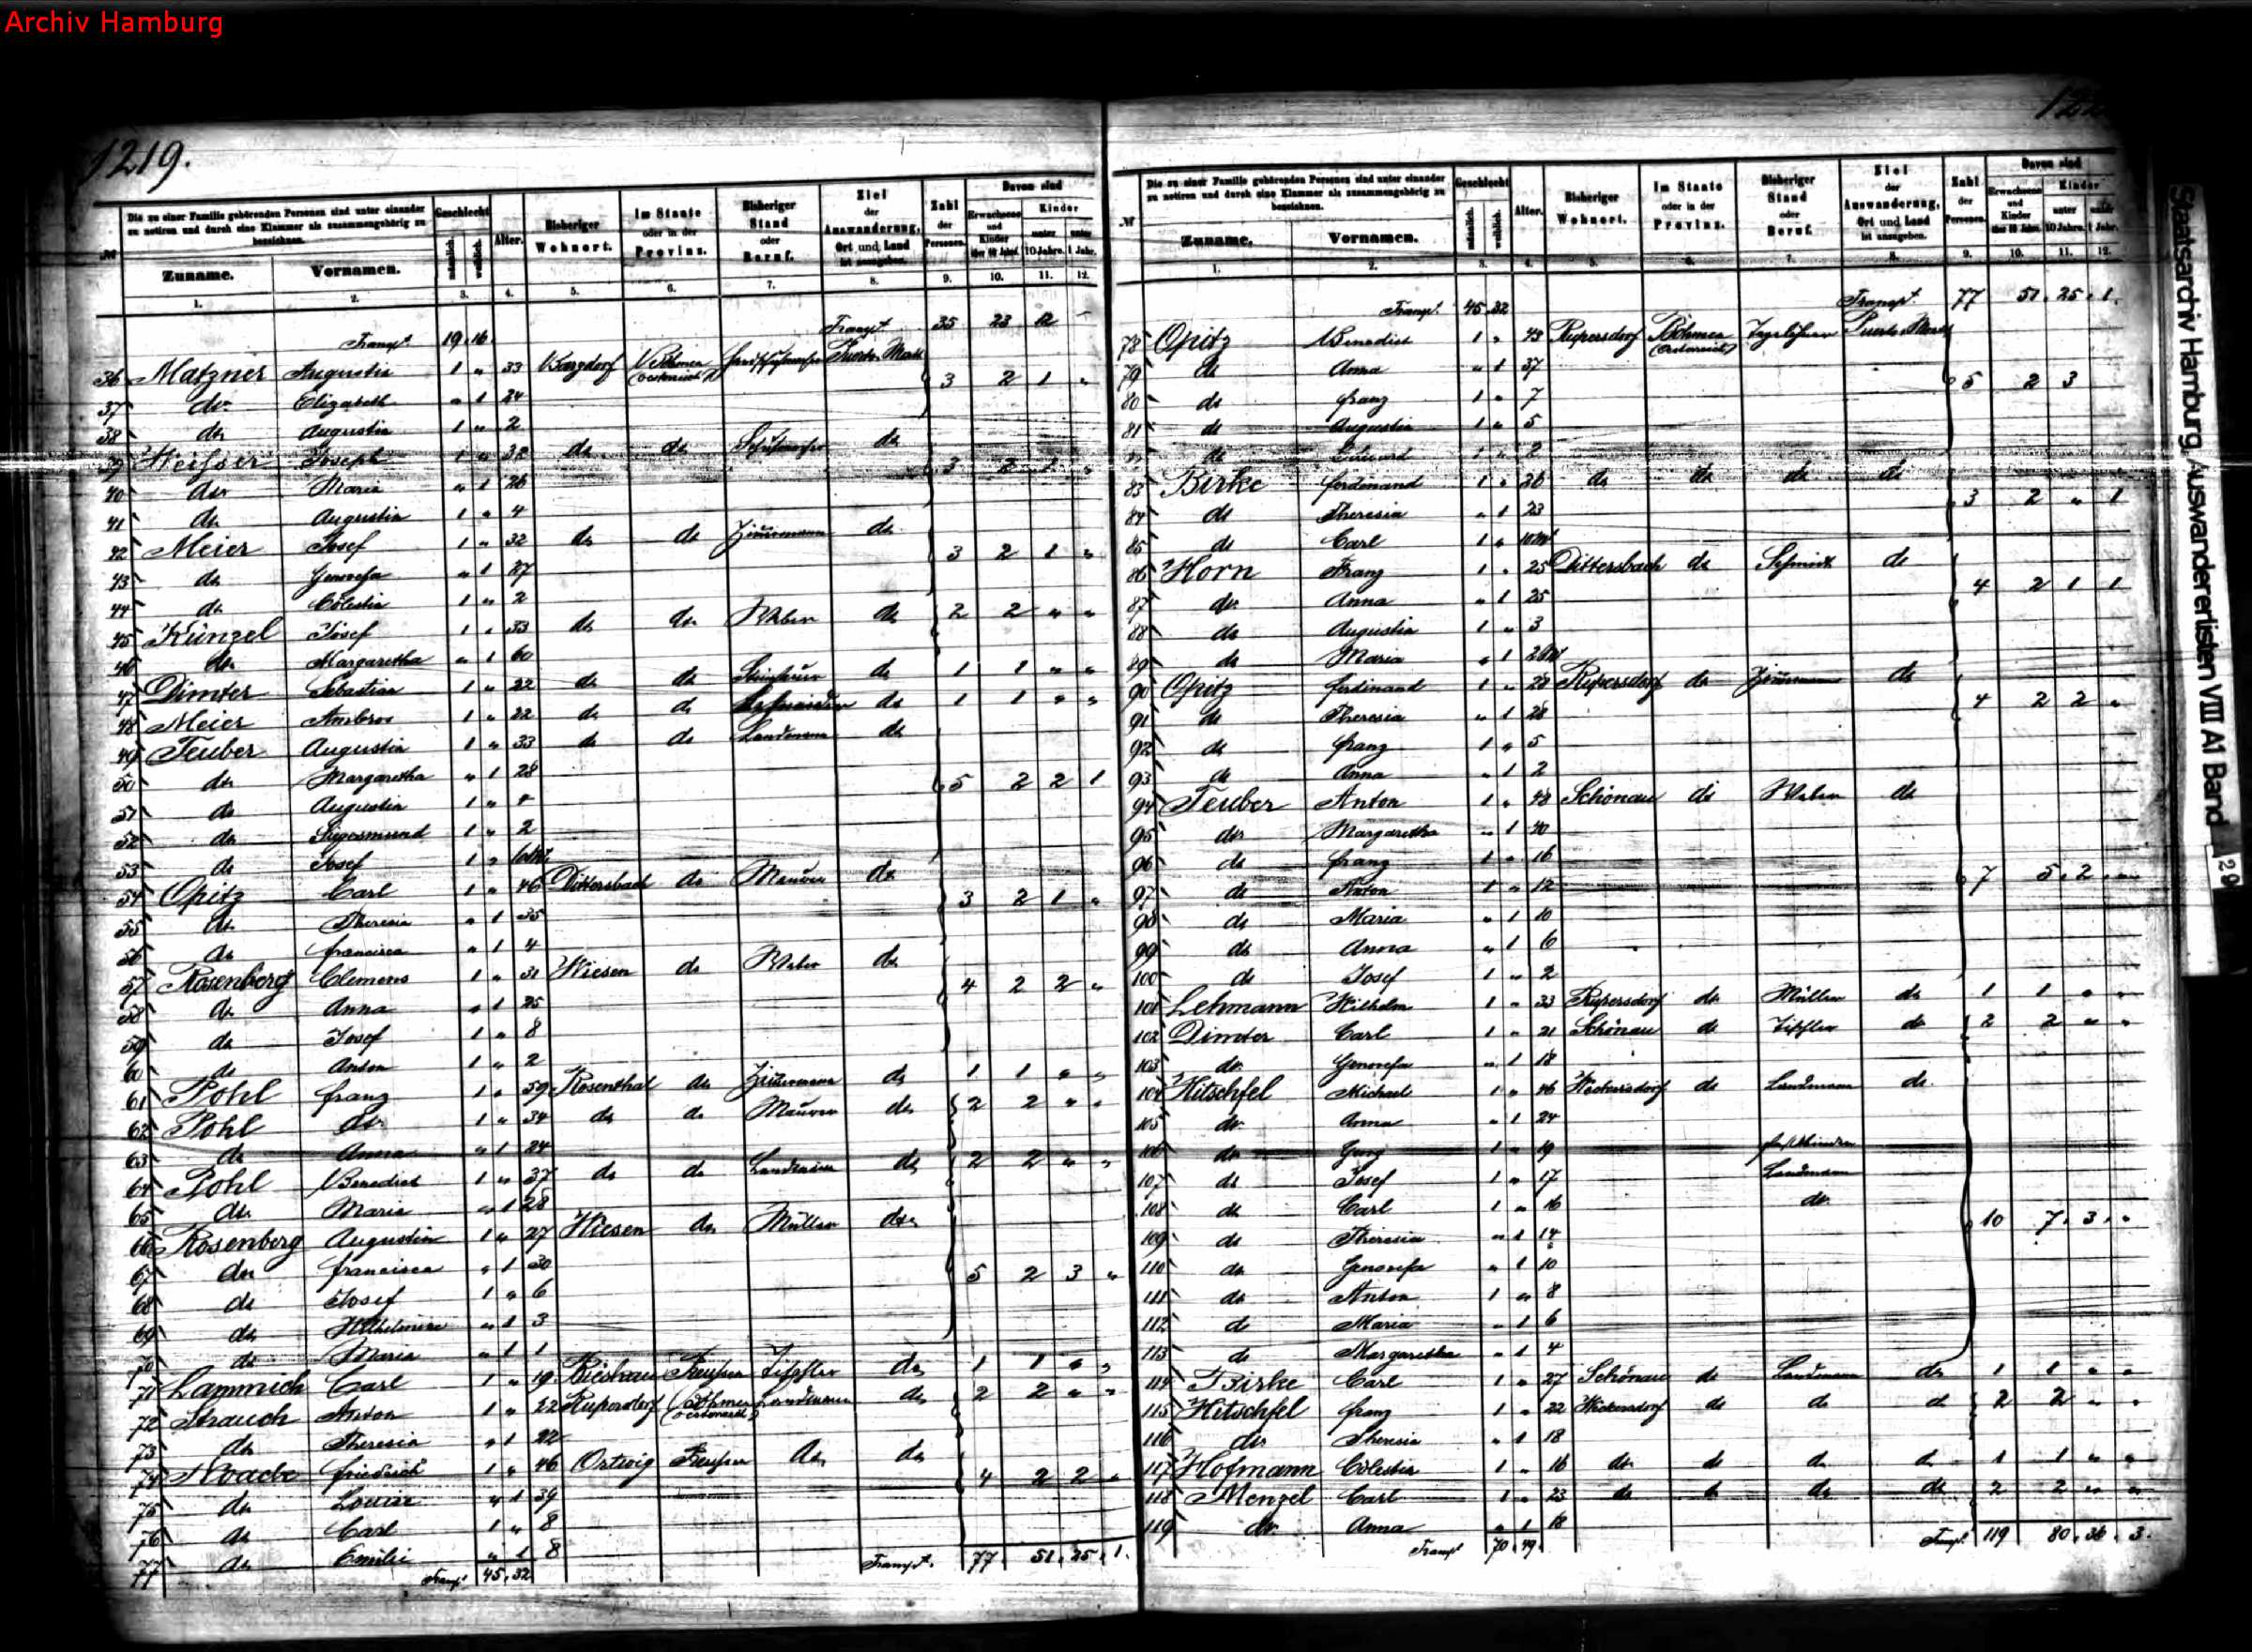 Archiv Hamburg
1219.
Die zu einer Familie gehörenden Personen sind unter einander zu notiren und durch eine Klammer als zusammengehörig zu bezeichnen.
Zuname. Vornamen. Geschlecht männlich. weiblich. Alter. Bisheriger Wohnort. Im Staate oder in der Provinz. Bisheriger Stand oder Beruf. Ziel der Auswanderung, Ort und Land ist anzugeben. Zahl der Personen. Davon sind Erwachsene und Kinder über 10 Jahre. Kinder unter 10 Jahre. unter 1 Jahr.
1. 2. 3. 4. 5. 6. 7. 8. 9. 10. 11. 12.
Transpt. 19 16 Transpt 35 23 12 -
36 Matzner Augustin 1 " 33 Böhmen (Oesterreich) 3 2 1 "
37 do Elizabeth " 1 24
38 do Augustin 1 " 2
39 Joseph 1 " 32 do do do 3 2 1 "
40 do Maria " 1 26
41 do Augustin 1 " 4
42 Meier Josef 1 " 32 do do Zimmermann do 3 2 1 "
43 do Genovefa " 1 27
44 do Cölestin 1 " 2
45 Künzel Josef 1 " 33 do do Weber do 2 2 " "
46 do Margaretha " 1 60
47 Dimter Sebastian 1 " 22 do do do 1 1 " "
48 Meier Ambros 1 " 22 do do do 1 1 " "
49 Teuber Augustin 1 " 33 do do Landmann do
50 do Margaretha " 1 28 5 2 2 1
51 do Augustin 1 " 4
52 do Sigismund 1 " 2
53 do Josef 1 "
54 Opitz Carl 1 " 46 Dittersbach do Maurer do 3 2 1 "
55 do Theresia " 1 35
56 do Francisca " 1 4
57 Rosenberg Clemens 1 " 31 Wiesen do Weber do 4 2 2 "
58 do Anna " 1 25
59 do Josef 1 " 8
60 do Anton 1 " 2
61 Pohl Franz 1 " 59 Rosenthal do Zimmermann do 1 1 " "
62 Pohl do 1 " 34 do do Maurer do 2 2 " "
63 do Anna " 1 24
64 Pohl Benedict 1 " 37 do do Landmann do 2 2 " "
65 do Maria " 1 28
66 Rosenberg Augustin 1 " 27 Wiesen do Müller do
67 do Francisca " 1 30 5 2 3 "
68 do Josef 1 " 6
69 do Wilhelmine " 1 3
70 do Maria " 1 1
71 Lammich Carl 1 " 19 Preußen Tischler do 1 1 " "
72 Strauch Anton 1 " 22 Rupersdorf Böhmen (Oesterreich) Landmann do 2 2 " "
73 do Theresia " 1 22
74 Noacke Friedrich 1 " 46 Ortwig Preußen do do 4 2 2 "
75 do Louise " 1 39
76 do Carl 1 " 8
77 do Emilie " 1 8
Transpt 45 32 Transpt. 77 51 25 1.
№ Die zu einer Familie gehörenden Personen sind unter einander zu notiren und durch eine Klammer als zusammengehörig zu bezeichnen.
Zuname. Vornamen. Geschlecht männlich. weiblich. Alter. Bisheriger Wohnort. Im Staate oder in der Provinz. Bisheriger Stand oder Beruf. Ziel der Auswanderung, Ort und Land ist anzugeben. Zahl der Personen. Davon sind Erwachsene und Kinder über 10 Jahre. Kinder unter 10 Jahre. unter 1 Jahr.
1. 2. 3. 4. 5. 6. 7. 8. 9. 10. 11. 12.
Transpt. 45 32 Transpt 77 51 25 1.
78 Opitz Benedict 1 " 43 Rupersdorf Böhmen (Oesterreich) Tagelöhner
79 do Anna " 1 37
80 do Franz 1 " 7 5 2 3
81 do Augustin 1 " 5
do Eduard 1 " 2
83 Birke Ferdinand 1 " 26 do do do do
84 do Theresia " 1 23 3 2 " 1
85 do Carl 1 "
86 Horn Franz 1 " 25 Dittersbach do Schmidt do
87 do Anna " 1 25 4 2 1 1
88 do Augustin 1 " 3
89 do Maria " 1
90 Opitz Ferdinand 1 " 28 Rupersdorf do Zimmermann do
91 do Theresia " 1 28 4 2 2 "
92 do Franz 1 " 5
93 do Anna " 1 2
94 Teuber Anton 1 " 48 Schönau do Weber do
95 do Margaretha " 1 40
96 do Franz 1 " 16
97 do Anton 1 " 12 7 5 2 "
98 do Maria " 1 10
99 do Anna " 1 6
100 do Josef 1 " 2
101 Lehmann Wilhelm 1 " 33 Rupersdorf do Müller do 1 1 " "
102 Dimter Carl 1 " 21 Schönau do Tischler do 2 2 " "
103 do Genovefa " 1 18
104 Hitschfel Michael 1 " 46 Weckersdorf do Landmann do
105 do Anna " 1 24
106 do Georg 1 " 19
107 do Josef 1 " 17 Landmann
108 do Carl 1 " 16 do
109 do Theresia " 1 14 10 7 3 "
110 do Genovefa " 1 10
111 do Anton 1 " 8
112 do Maria " 1 6
113 do Margaretha " 1 4
114 Birke Carl 1 " 27 Schönau do Landmann do 1 1 " "
115 Hitschfel Franz 1 " 22 Weckersdorf do do do 2 2 " "
116 do Theresia " 1 18
117 Hofmann Cölestin 1 " 16 do do do do 1 1 " "
118 Menzel Carl 1 " 23 do do do do 2 2 " "
119 do Anna " 1 18
Transpt 70 49 Transpt. 119 80 36 3.
Staatsarchiv Hamburg, Auswandererlisten VIII A1 Band 29